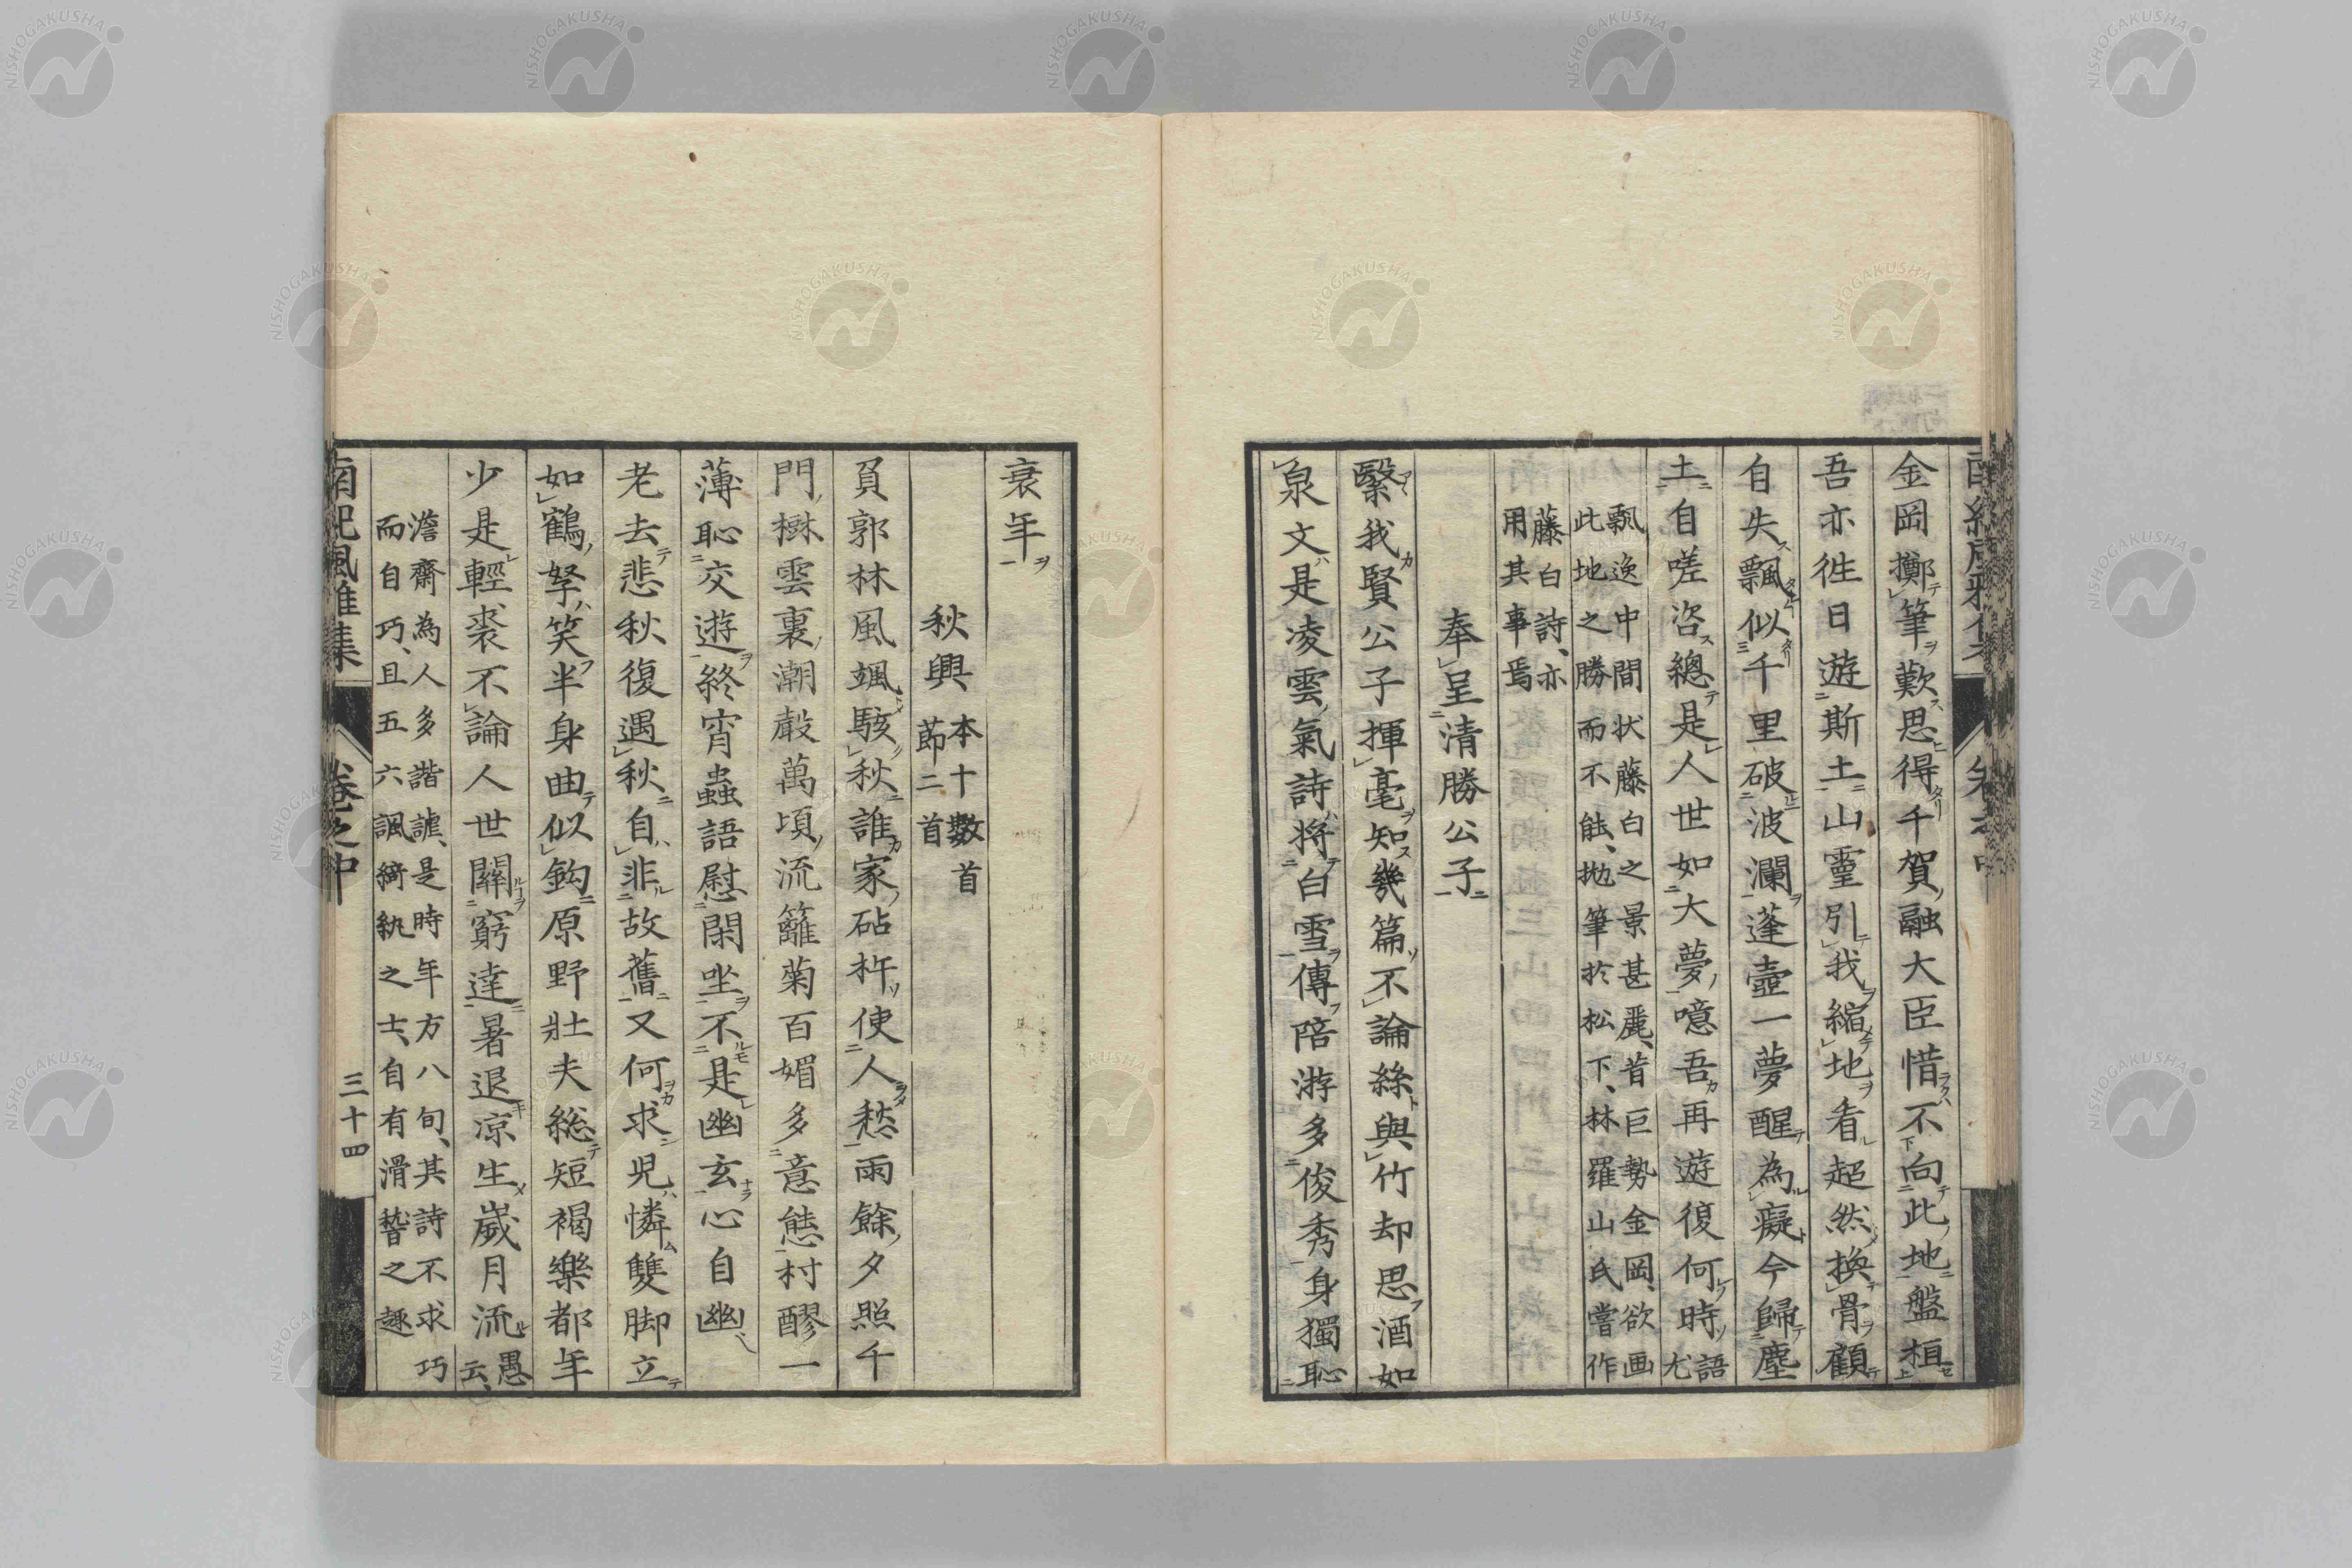 金岡擲筆歎思得千賀融大臣惜不向此地盤桓
吾亦徃日遊斯土山靈引我縮地看超然換骨顧
自失飄似千里破波瀾蓬壺一夢醒為癡今歸塵
土自嗟咨總是人世如大夢噫吾再遊復何時語尤
飄逸中間状藤白之景甚麗、昔巨勢金岡、欲画
此地之勝而不能、拋筆於松下、林羅山氏嘗作
藤白詩、亦
用其事焉
奉呈清勝公子
繄我賢公子揮毫知幾篇不論絲與竹却思酒如
泉文是凌雲氣詩將白雪傳陪游多俊秀身獨恥
衰年
秋興 本十數首
節二首
負郭林風颯駭秋誰家砧杵使人愁雨餘夕照千
門楙雲裏潮聲萬頃流籬菊百媚多意態村醪一
薄恥交遊終宵蟲語慰閑坐不是幽玄心自幽
老去悲秋復遇秋自非故舊又何求児憐雙脚立
如鶴孥笑半身曲似鈎原野壯夫総短褐樂都年
少是輕裘不論人世關窮達暑退凉生歲月流愚云、
澹齋為人多諧謔、是時年方八旬、其詩不求巧
而自巧、且五六諷綺紈之士、自有滑替之趣
南紀風雅集 卷之中 三十四
NISHOGAKUSHA